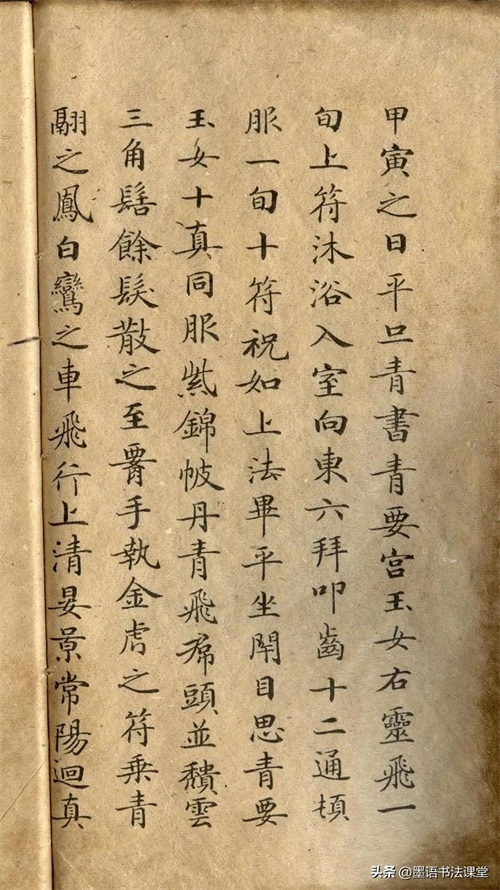 甲寅之日平旦青書青要宮玉女右靈飛一
旬上符沐浴入室向東六拜叩齒十二通頓
服一旬十符祝如上法畢平坐閉目思青要
玉女十真同服紫錦帔丹青飛帬頭並穨雲
三角髻餘髮散之至𦝫手執金虎之符乗青
翮之鳳白鸞之車飛行上清晏景常陽迴真
头条@墨语书法课堂